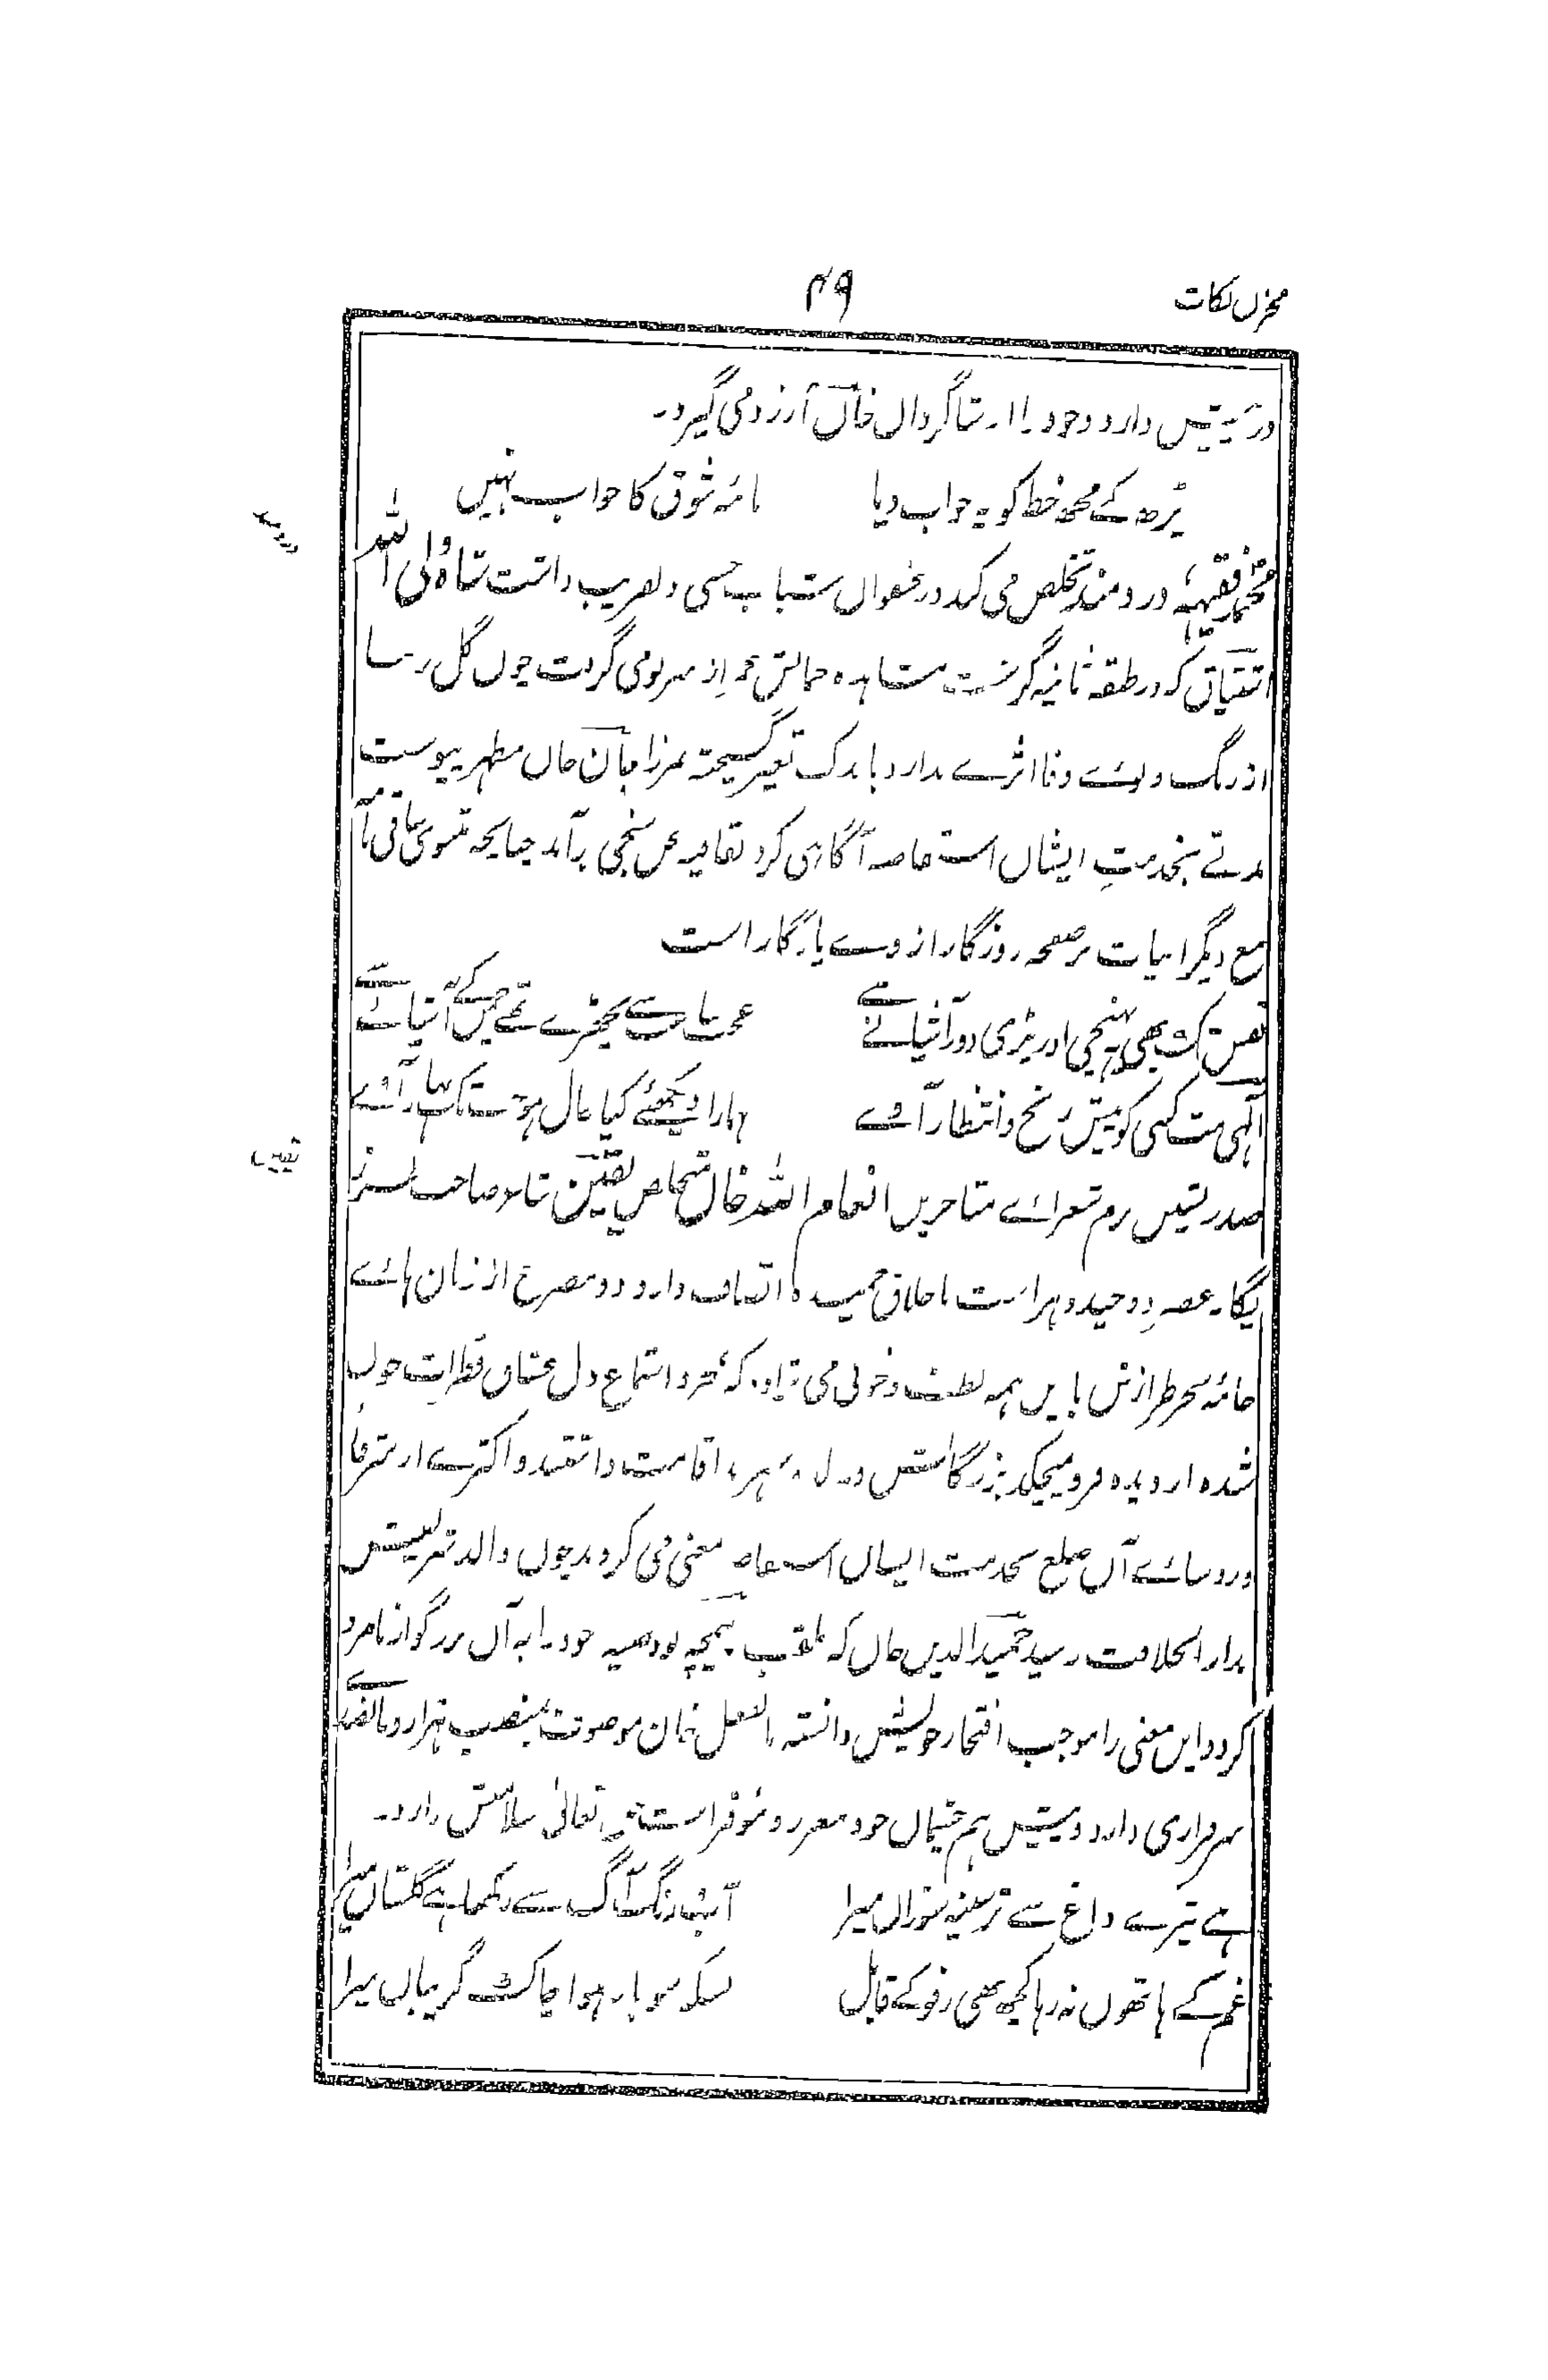 مخزن نکات
۴۹
دارد و خود را از شاگردان خان آرزو می گیرد۔
پڑھ کے مجھ خط کو یہ جواب دیا
نامۂ شوق کا جواب نہیں
محمد فقیہہ، دردمند تخلص می کند در عنفوان شباب حسنی دلفریب داشت شاہ ولی اللہ
دردمند
اشتیاق کہ در طبقہ ثانیہ گزشت بمشاہدہ جمالش از سر نو می گردت چوں گل رعنا
از رنگ و بوئے وفا اثرے ندارد باندک تغیر گسیختہ بمرزا جان جاں مظہر پیوست
مدتے بخدمتِ ایشاں استفاضہ آگاہی کرد سخن سنجی برآمد چنانچہ مثنوی ساقی نامہ
مع دیگر ابیات بر صفحہ روزگار از وے یادگار است
قفس تک بھی پہنچی اور پڑی دور آشیانے سے
عجب ساعت سے بچھڑے تھے چمن کے آشیانے سے
الٰہی مت کسی کو پیش رنج و انتظار آوے
ہمارا دیکھئے کیا حال ہو جب تک بہار آوے
یقین
صدر نشیں بزم شعرائے متاخریں انعام اللہ خاں المتخلص یقین شاعر صاحب طرز
یگانہ عصر و وحید دہر است باخلاق حمیدہ اتصاف دارد و ہر مصرع از زبان ہائے
خامۂ سحر طرازش بایں ہمہ لطف و خوبی می تراود کہ بمجرد استماع دل عشاق قطرات خوں
شدہ از دیدہ فرو میچکد بزرگانش در اقامت داشتند و اکثرے از شرفا
و روسائے آں ضلع بخدمت ایشاں استفاضہ معنی می کردند چوں والد شریفش
بدار الخلافت رسید حمید الدین خاں کہ ملقب بہ نیمچہ بود صبیہ خود را بہ آں بزرگوار نامزد
کرد و ایں معنی را موجب افتخار خویش دانستہ بالفعل خان موصوف بمنصب ہزار و پانصدی
سرفرازی دارد و پیش ہم چشمان خود معزز و موقر است تعالیٰ سلامتش دارد۔
ہے تیرے داغ سے تر سینہ سوزاں میرا
آب و رنگ آگ سے رکھتا ہے گلستاں میرا
غم کے ہاتھوں نہ رہا کچھ بھی رفو کے قابل
بسکہ سو بار ہوا چاک گریباں میرا